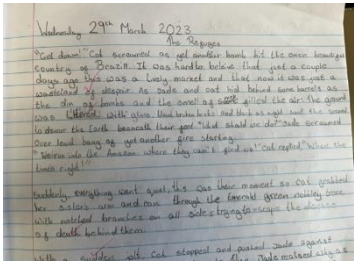 Wednesday 29th March 2023
The Refugees
"Get down!" Cat screamed as yet another bomb hit the once beautiful
country of Brazil. It was hard to believe that just a couple
days ago this was a lively market and that now it was just a
wasteland of despair. As Jade and Cat hid behind some barrels as
the din of bombs and the smell of filled the air. the ground
was littered with glass
to devour the Earth beneath their feet. "What shall we do?" Jade screamed
over loud bang of yet another fire starting.
the Amazon where they can't find us!" Cat replied "When the
time's right!"
Suddenly, everything went quiet, this was their moment so Cat grabbed
her sister's arm and ran through the emerald green
with branches on all sides trying to escape the
of death behind them.
With a sudden jolt, Cat stopped and pushed Jade against